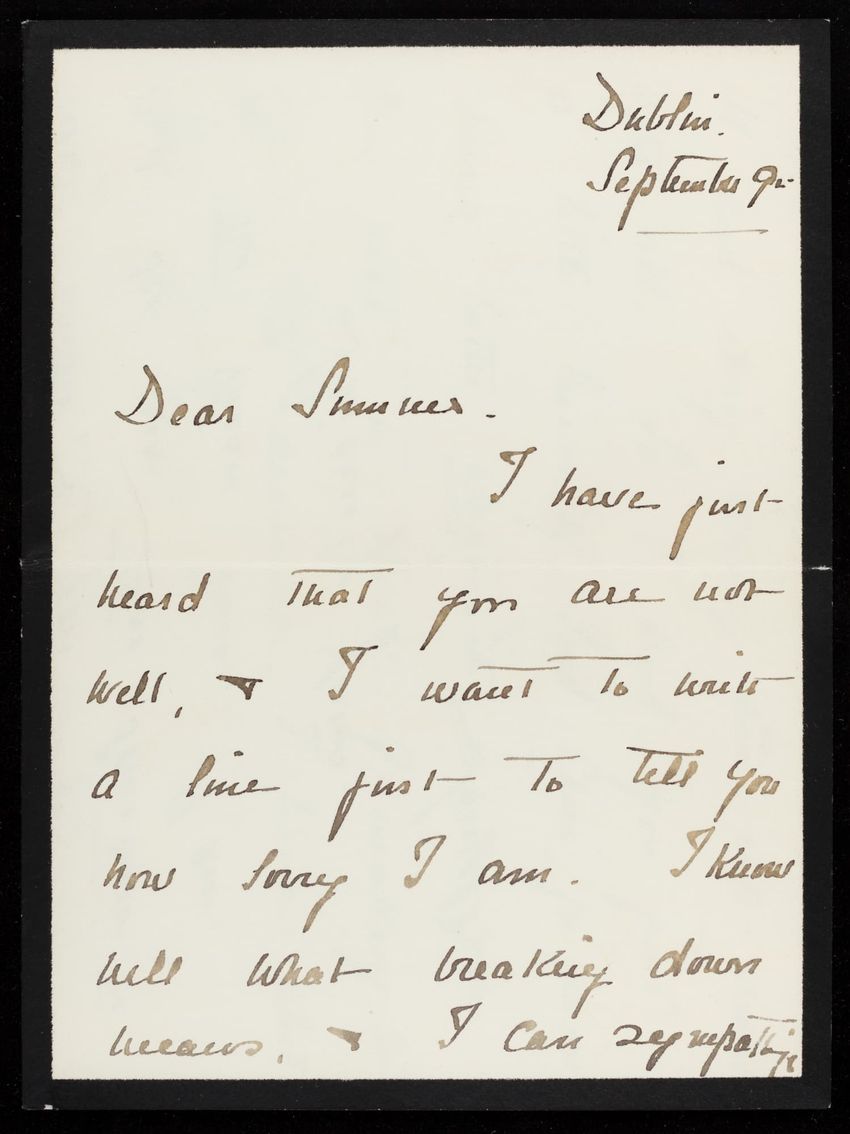 Dublin.
September 9th
Dear Sumner.
I have just
heard that you are not
well, & I want to write
a line just to tell you
how sorry I am. I know
well what breaking down
means, & I can sympathize